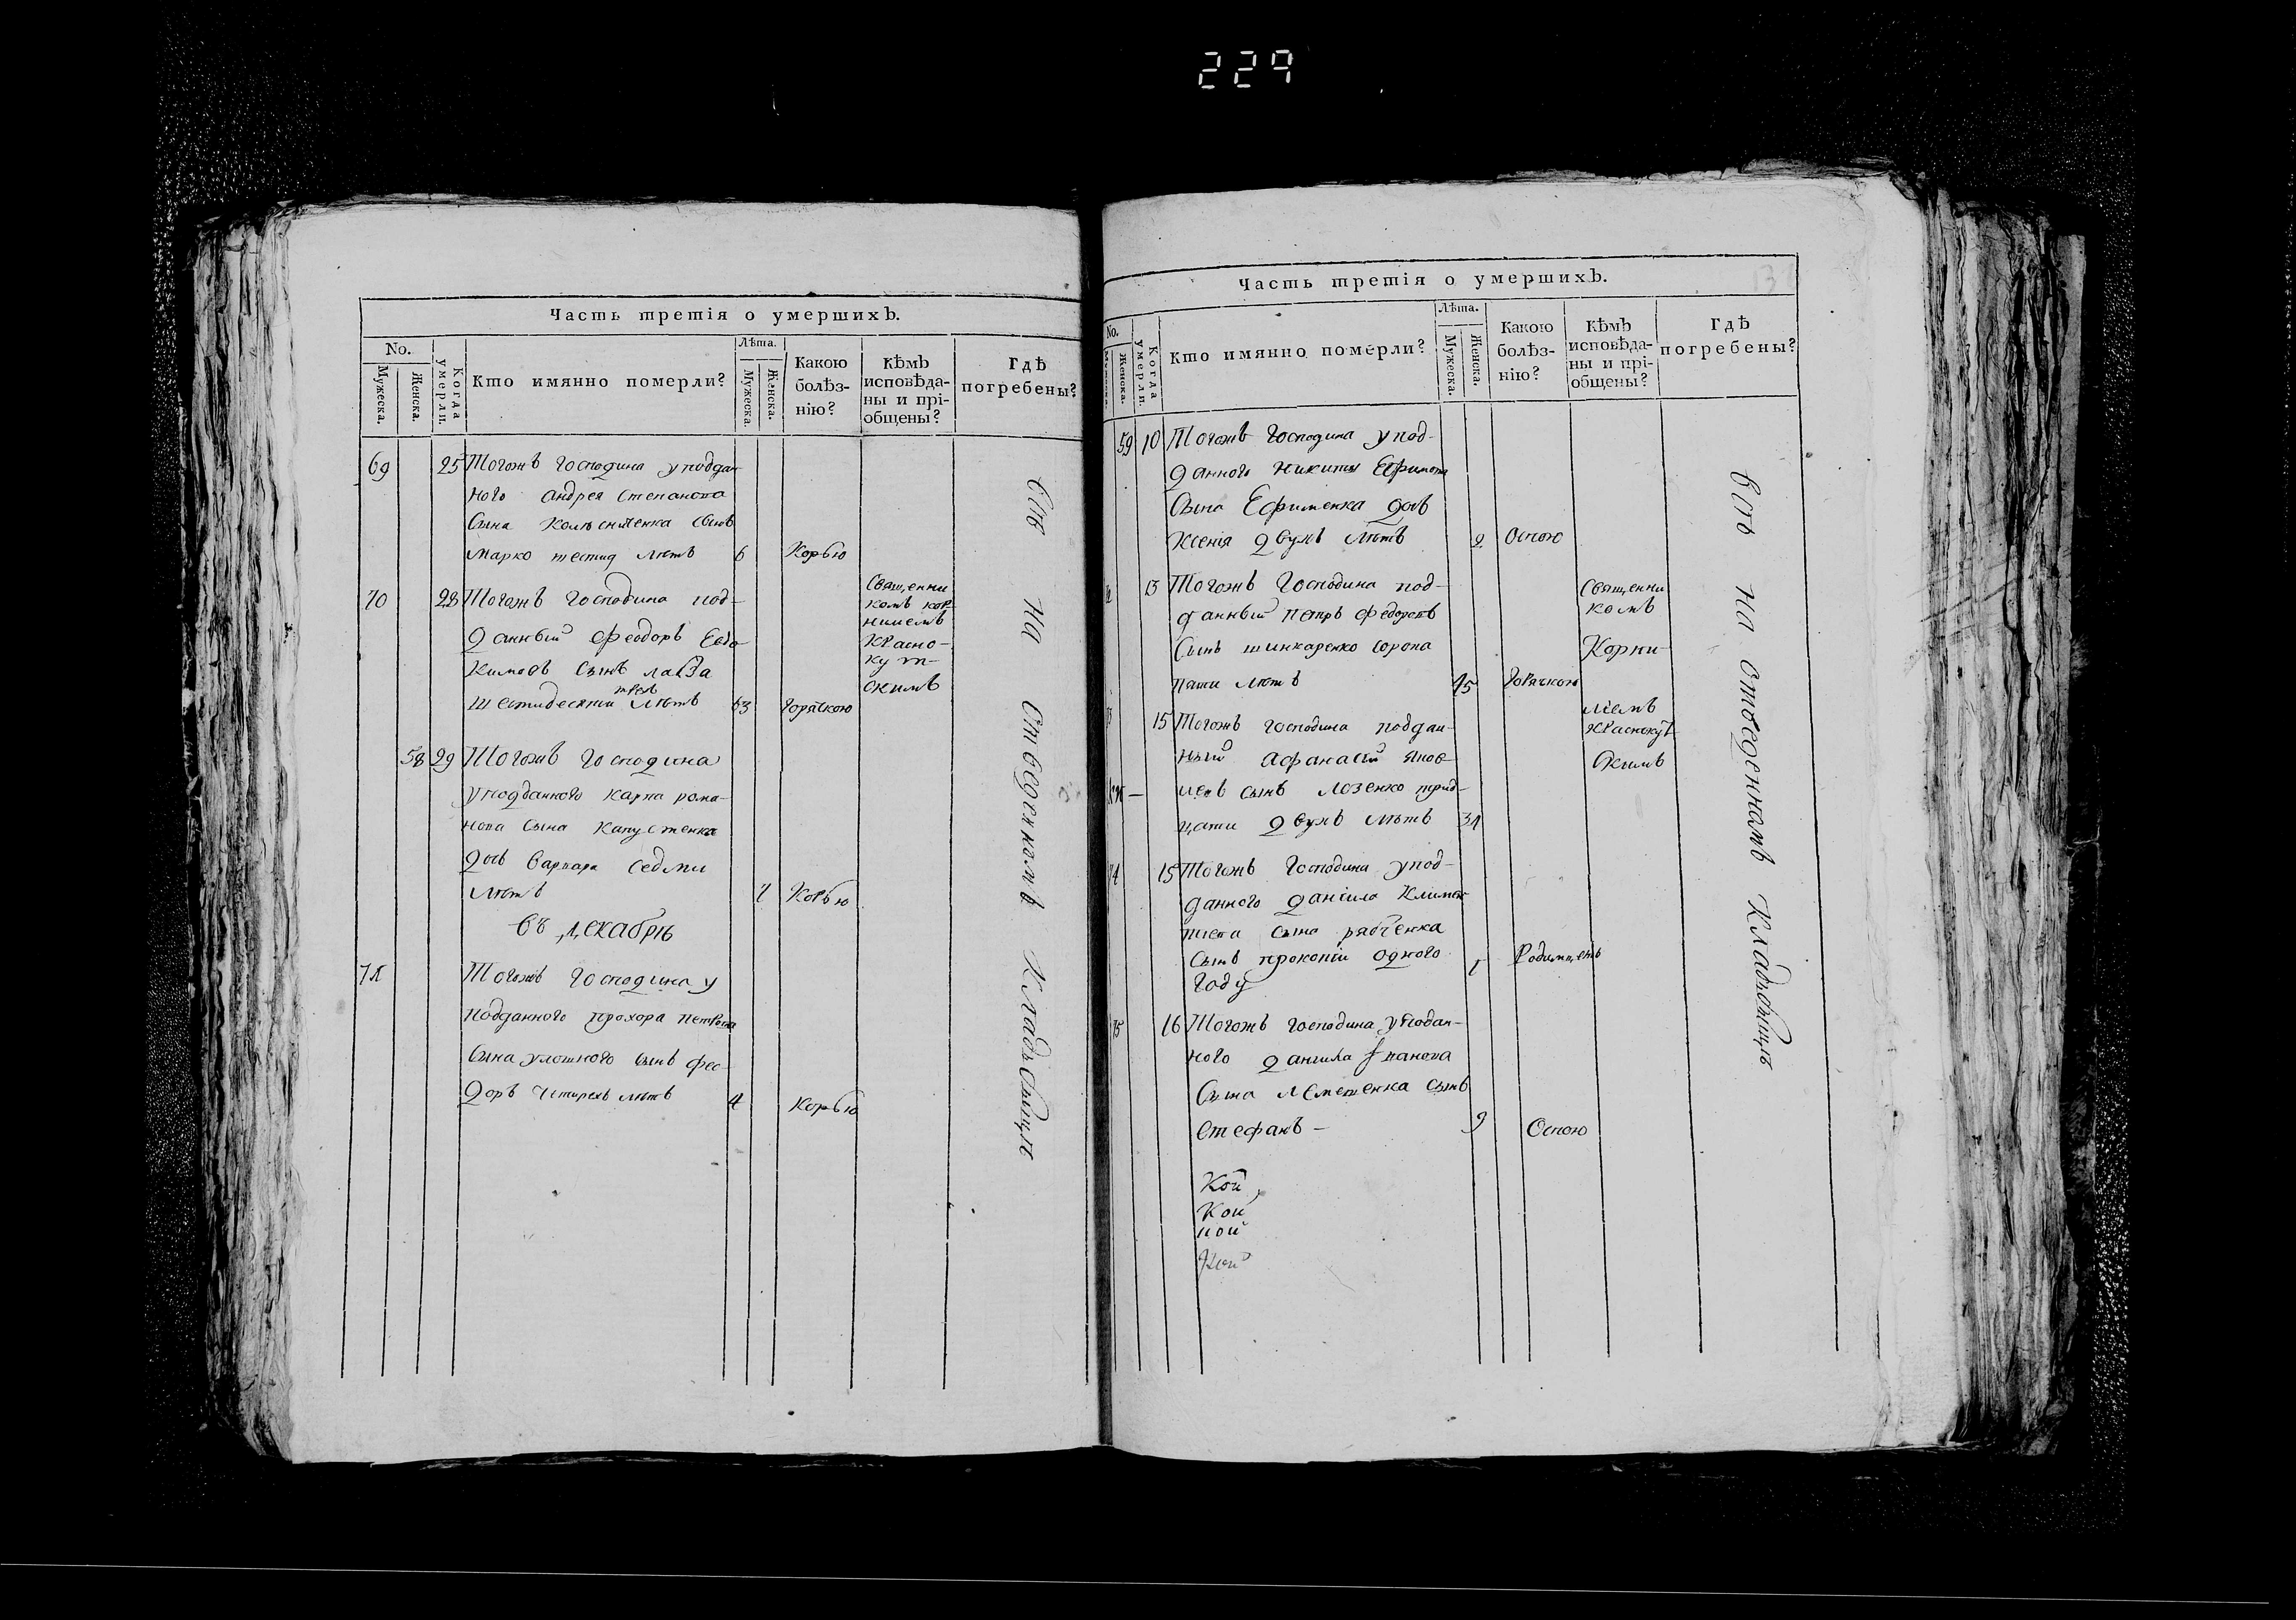 229
Часть третія о умершихъ.
No.
Мужеска.
Женска.
Когда умерли.
Кто имянно померли?
Лѣта.
Мужеска.
Женска.
Какою болѣз-
нію?
Кѣмъ
исповѣда-
ны и прі-
общены?
Гдѣ
погребены?
69 25 Тогожъ Господина у поддан
ного Андрея Степанова
Сына сынъ
Марко шести лѣтъ 6 Корью
70 28 Тогожъ Господина под-
данный Феодоръ Евдо
кимовъ Сынъ
шестидесяти трехъ лѣтъ 63 горячкою
Священни
комъ Кор
ниліемъ
Красно-
кут-
скимъ
58 29 Тогожъ Господина
у подданного Карпа Рома-
нова Сына Капустенка
дочь Варвара Седми
лѣтъ 7 Корью
въ декабрѣ
71 Тогожъ Господина у
подданного Прохора Петрова
Сына сынъ Фео-
доръ Четирехъ лѣтъ 4 Корью
на отведенномъ Кладбищѣ
Часть третія о умершихъ.
No.
Женска.
Когда умерли.
Кто имянно померли?
Лѣта.
Мужеска.
Женска.
Какою
болѣз-
нію?
Кѣмъ
исповѣда-
ны и прі-
общены?
Гдѣ
погребены?
59 10 Тогожъ Господина у под-
данного Никиты Ефимова
Сына Ефименка дочь
Ксенія двухъ лѣтъ 2 Оспою
13 Тогожъ Господина под-
данный Петръ Федоровъ
Сынъ Шинкаренко сорока
пяти лѣтъ 45 Горячкою
Священни
комъ
Корни-
ліемъ
Краснокут
скимъ
15 Тогожъ Господина поддан-
ный Афанасій Яков
левъ Сынъ Лозенко трид-
цати двухъ лѣтъ
74 15 Тогожъ Господина у под-
данного Даніила Климен
тіева Сына Рябченка
Сынъ Прокопій одного
году 1 Родимцемъ
75 16 Тогожъ Господина у подан-
ного Даніила
Сына Сынъ
Стефанъ — 3 Оспою
Кой
Кои
кой
на отведенномъ Кладбищѣ